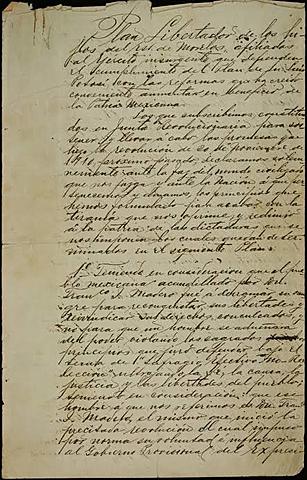 Plan Libertador de los hi-
jos del Est. de Morelos, afiliados
al Ejército insurgente que defienden
el cumplimiento del Plan de San Luis
Potosí, con las reformas que ha creido
conveniente aumentar en beneficio de
la Patria Mexicana.
Los que subscribimos, constitui-
dos en Junta Revolucionaria para sos-
tener y llevar á cabo las promesas que
hizo la revolución de 20 de Noviembre de
1910, próximo pasado, declaramos solem-
nemente ante la faz del mundo civilizado
que nos juzga y ante la Nación á que per-
tenecemos y amamos, los principios que
hemos formulado para acabar con la
tiranía que nos oprime y redimir
á la patria de las dictaduras que se
nos imponen las cuales quedan deter-
minadas en el siguiente Plan:
1º Teniendo en consideración que el pue-
blo mexicano acaudillado por Don
Franco. I. Madero fué á derramar su san-
gre para reconquistar sus libertades y
reivindicar sus derechos conculcados, y
no para que un hombre se adueñara
del poder violando los sagrados
principios que juró defender bajo el
lema de "Sufragio Efectivo" "No Re-
elección" ultrajando la fé, la causa, la
justicia y las libertades del pueblo;
teniendo en consideración: que ese
hombre á que nos referimos es Don Fran-
co I. Madero, el mismo que inició la
precitada revolución el cual impuso
por norma su voluntad é influencia
al Gobierno Provisional del Ex Presi-